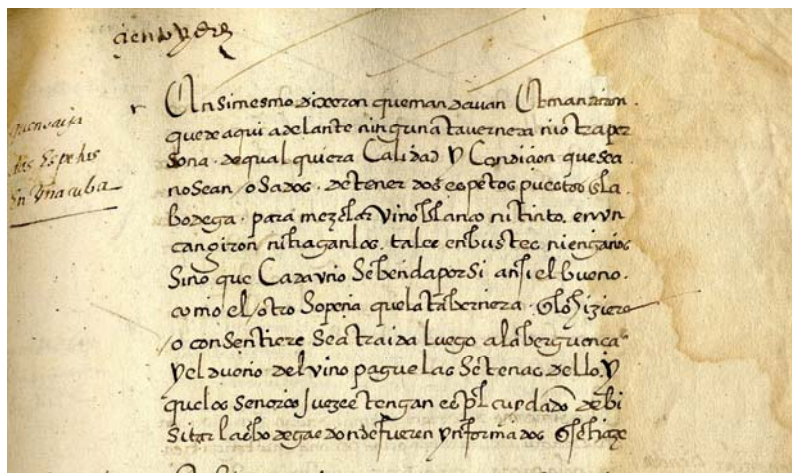 ciento y dos
que no aya
dos espetos
en vna cuba
Ansimesmo dixeron que mandauan & mandaron
que de aqui adelante ninguna tauernera ni otra per
sona de qualquiera Calidad y Condiçion que sea
no sean osados de tener dos espetos puestos en la
bodega para mezclar vino blanco ni tinto en vn
cangiron ni hagan los tales enbustes ni engaños
Sino que Cada vno Se benda por Si ansi el bueno
como el otro So pena que la tabernera q lo hiziere
o conSentiere Sea traida luego a la berguença
y el dueño del vino pague las Setenas dello y
que los Señores Juezes tengan espl cuydado de bi
Sitar las bodegas donde fueren ynformados q se haze